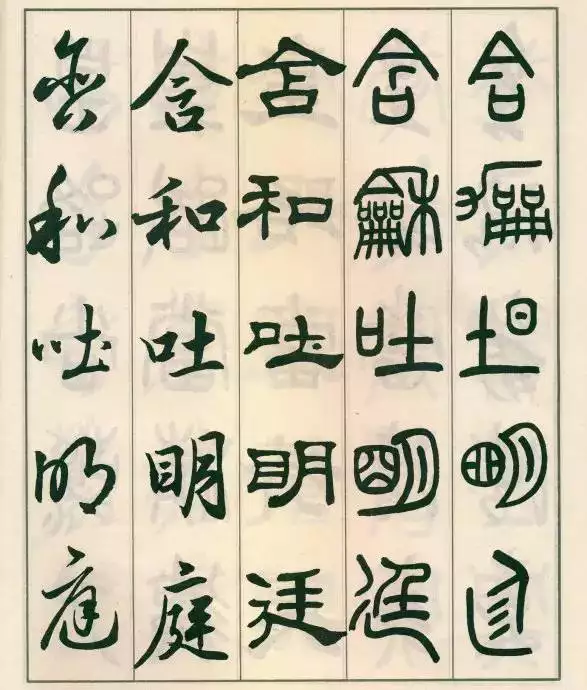 含吐明
含龢吐明廷
含和吐明廷
含和吐明庭
含和吐明庭